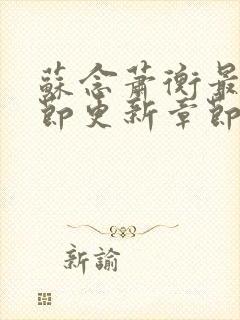 蘇念蕭衡最
節更新章節
新諭